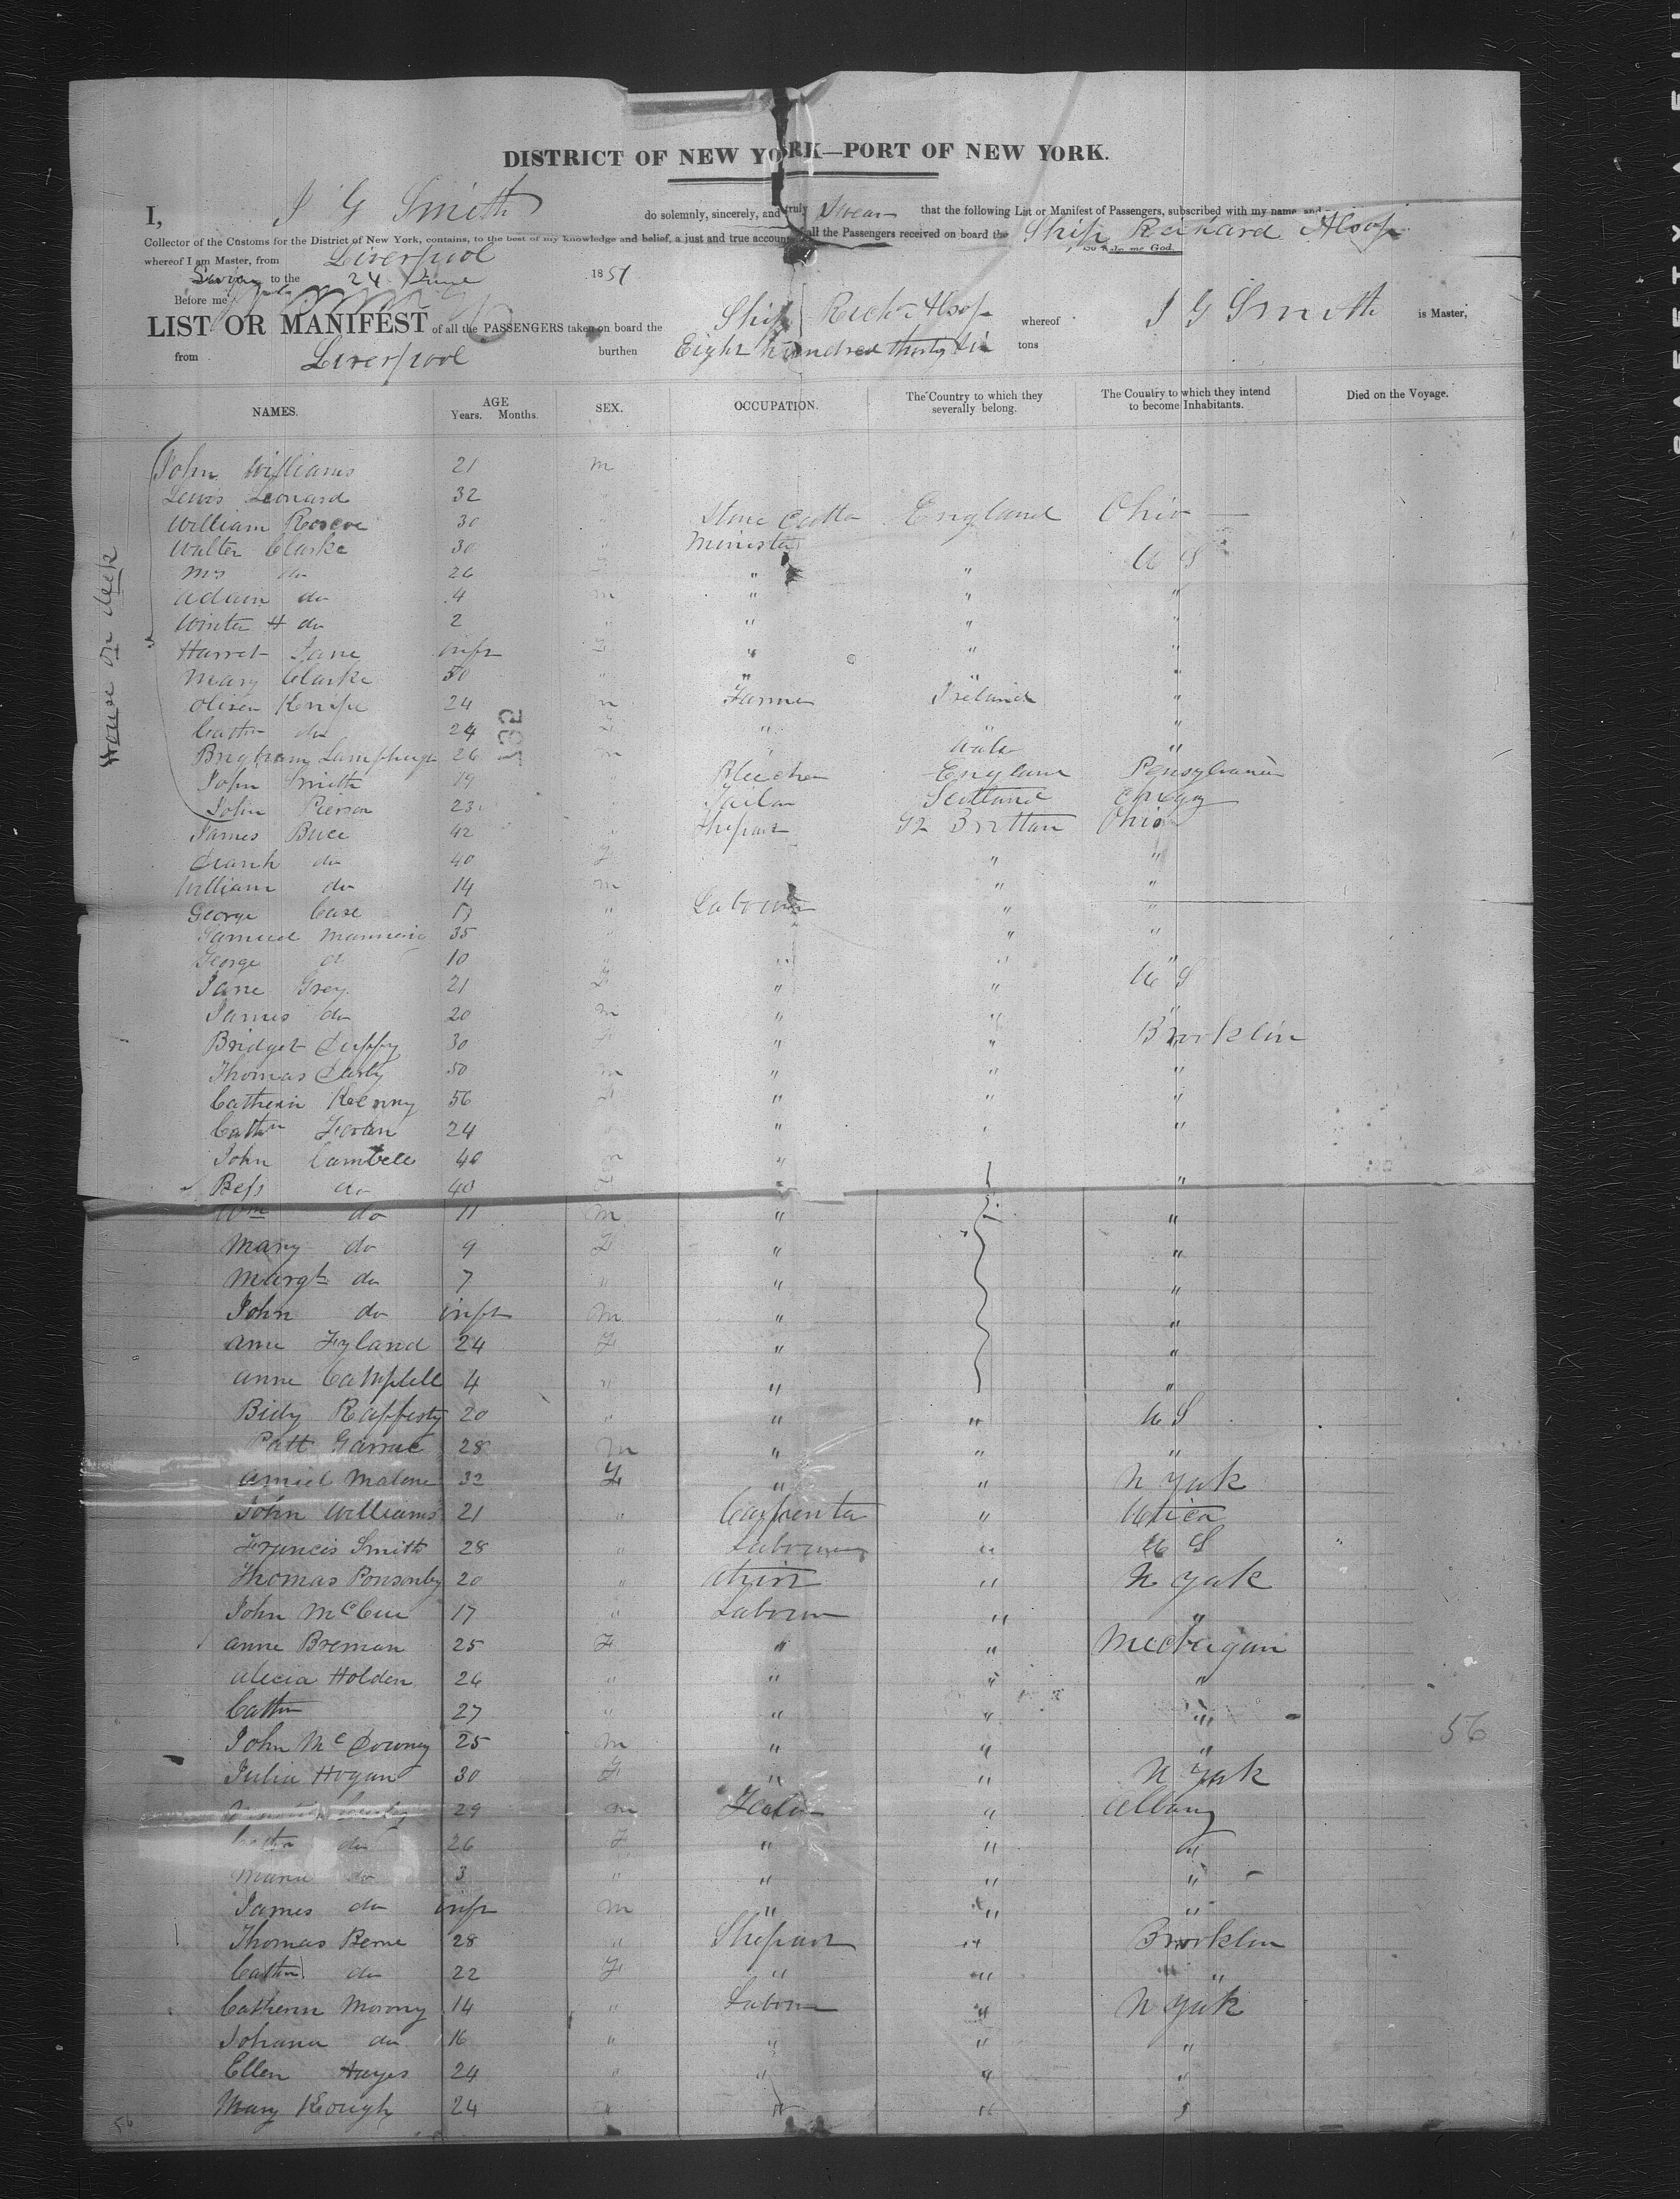 DISTRICT OF NEW YORK—PORT OF NEW YORK.
I, J G Smith do solemnly, sincerely, and truly Swear that the following List or Manifest of Passengers, subscribed with my name, and
Collector of the Customs for the District of New York, contains, to the best of my knowledge and belief, a just and true account of all the Passengers received on board the Ship Richard Alsop
whereof I am Master, from Liverpool So help me God.
Sworn to the 24 June 1851
Before me
LIST OR MANIFEST of all the PASSENGERS taken on board the Ship Richd Alsop whereof J G Smith is Master,
from Liverpool burthen Eight hundred thirty Six tons
NAMES. AGE Years. Months. SEX. OCCUPATION. The Country to which they severally belong. The Country to which they intend to become Inhabitants. Died on the Voyage.
House on deck
John Williams 21 m
Lewis Leonard 32 "
William Roscoe 30 " Stone Cutter England Ohio
Walter Clarke 30 " Minister U S
Mrs do 26 F " "
Adam do 4 m " " "
Winter H do 2 " " " "
Harret Jane infr F " " "
Mary Clarke 50 " " " "
Oliver Knipe 24 m Farmer Ireland "
Cathn do 24 F " " "
26 m " Wale "
John Smith 19 " England Pensylvania
John Pierson 23 " Tailor Scotland
James Buce 42 " Gt Brittan Ohio
do 40 F " "
William do 14 m " "
George Case 19 " Labourer " "
Samuel 35 " " "
George do 10 " " " "
Jane Grey 21 F " " U S
James do 20 m " " "
Bridget Duffy 30 F " " Brooklin
Thomas 50 m " " "
Catherin Keenny 56 F " " "
Cathn 24 " " "
John Cambell 40 m "
Bess do 40 F " "
Wm do 11 m " "
Mary do 9 F " "
Margt do 7 " " "
John do infr m " "
Ann Fyland 24 F " "
Anne Campbell 4 " " "
Bidy Rafferty 20 " " " U S
Patt 28 m " " "
Malone 32 F " " N York
John Williams 21 " Carpenter " Utica
Francis Smith 28 " Labourer " U S
Thomas Ponsonby 20 " " N York
John McCue 17 " Labourer " "
Anne Brennan 25 F " " Mechigan
Alecia Holden 26 " " " "
Cathn 27 " " " "
John McDowney 25 m " " "
Julia Hogan 30 F " " N York
29 m " Albany
Cathn do 26 F " " "
Maria do 3 " " "
James do infr m " " "
Thomas Berne 28 " " Brooklin
Cathn do 22 F " " "
Catherin Morony 14 " Labour " N York
Johana do 16 " " " "
Ellen Hayes 24 " " " "
Mary Keough 24 " " " "
56